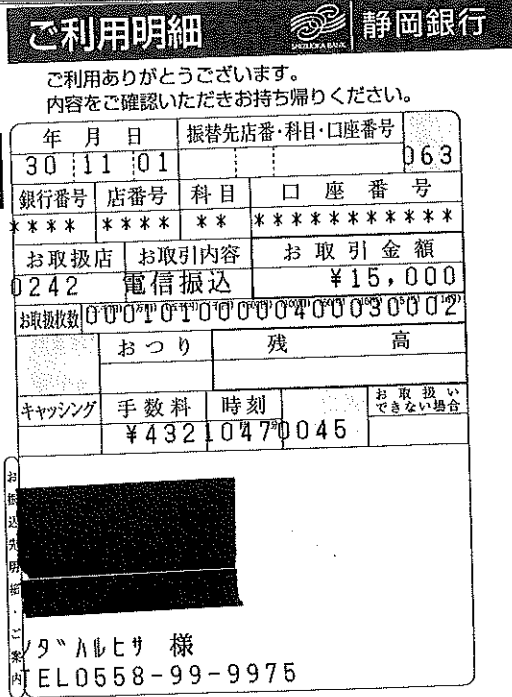 ご利用明細
SHIZUOKA BANK
静岡銀行
ご利用ありがとうございます。
内容をご確認いただきお持ち帰りください。
年 月 日 振替先店番・科目・口座番号
30 11 01 063
銀行番号 店番号 科目 口座番号
**** **** ** ***********
お取扱店 お取引内容 お取引金額
0242 電信振込 ¥15,000
お取扱枚数
おつり 残高
キャッシング 手数料 時刻 お取扱いできない場合
¥432 1047 0045
お振込先明細・ご案内
ノダハルヒサ 様
TEL0558-99-9975